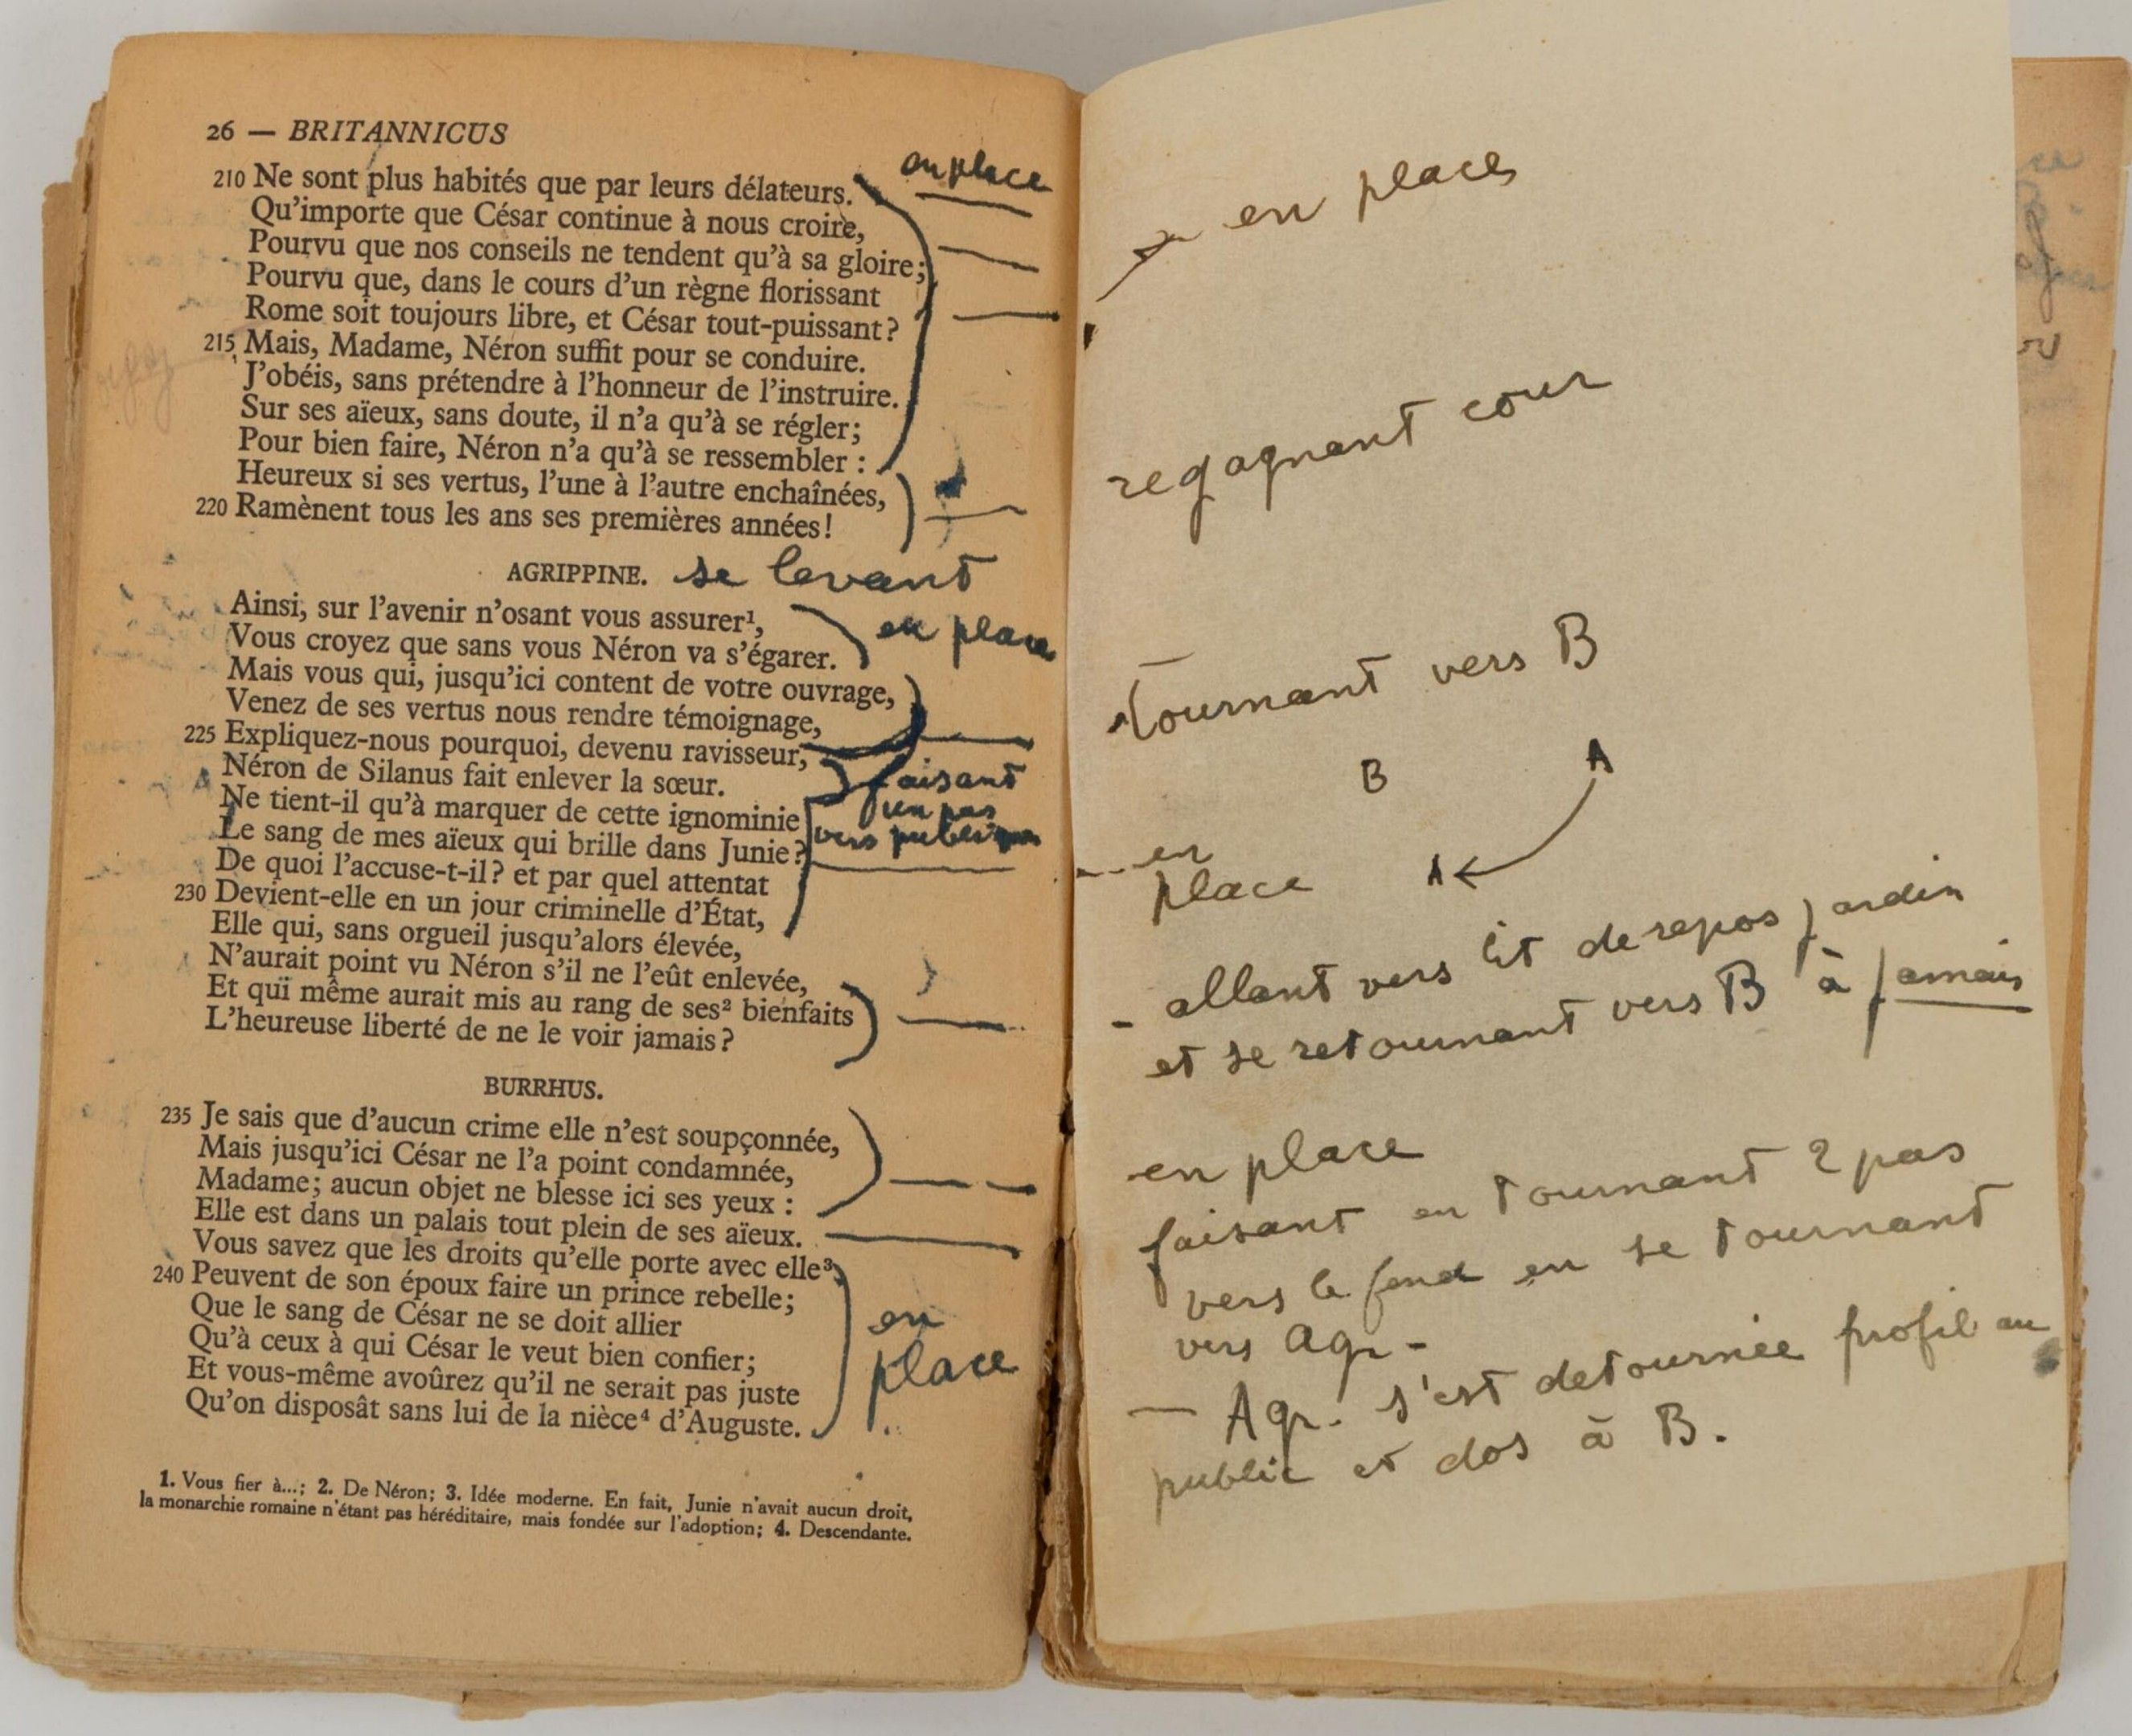 26 — BRITANNICUS
en place
210 Ne sont plus habités que par leurs délateurs.
Qu'importe que César continue à nous croire,
Pourvu que nos conseils ne tendent qu'à sa gloire;
Pourvu que, dans le cours d'un règne florissant
Rome soit toujours libre, et César tout-puissant?
215 Mais, Madame, Néron suffit pour se conduire.
J'obéis, sans prétendre à l'honneur de l'instruire.
Sur ses aïeux, sans doute, il n'a qu'à se régler;
Pour bien faire, Néron n'a qu'à se ressembler :
Heureux si ses vertus, l'une à l'autre enchaînées,
220 Ramènent tous les ans ses premières années!
AGRIPPINE. se levant
Ainsi, sur l'avenir n'osant vous assurer¹,
en place
Vous croyez que sans vous Néron va s'égarer.
Mais vous qui, jusqu'ici content de votre ouvrage,
Venez de ses vertus nous rendre témoignage,
225 Expliquez-nous pourquoi, devenu ravisseur,
Néron de Silanus fait enlever la sœur.
faisant
un pas
vers public
Ne tient-il qu'à marquer de cette ignominie
Le sang de mes aïeux qui brille dans Junie?
De quoi l'accuse-t-il? et par quel attentat
230 Devient-elle en un jour criminelle d'État,
Elle qui, sans orgueil jusqu'alors élevée,
N'aurait point vu Néron s'il ne l'eût enlevée,
Et qui même aurait mis au rang de ses² bienfaits
L'heureuse liberté de ne le voir jamais?
BURRHUS.
235 Je sais que d'aucun crime elle n'est soupçonnée,
Mais jusqu'ici César ne l'a point condamnée,
Madame; aucun objet ne blesse ici ses yeux :
Elle est dans un palais tout plein de ses aïeux.
Vous savez que les droits qu'elle porte avec elle³
240 Peuvent de son époux faire un prince rebelle;
Que le sang de César ne se doit allier
Qu'à ceux à qui César le veut bien confier;
Et vous-même avoûrez qu'il ne serait pas juste
Qu'on disposât sans lui de la nièce⁴ d'Auguste.
en
place
1. Vous fier à...; 2. De Néron; 3. Idée moderne. En fait, Junie n'avait aucun droit,
la monarchie romaine n'étant pas héréditaire, mais fondée sur l'adoption; 4. Descendante.
en place
regagnant cour
tournant vers B
B A
en
place A
- allant vers lit de repos jardin
et se retournant vers B à jamais
en place
faisant en tournant 2 pas
vers le fond en se tournant
vers Agr -
— Agr. s'est detournée profil au
public et dos à B.